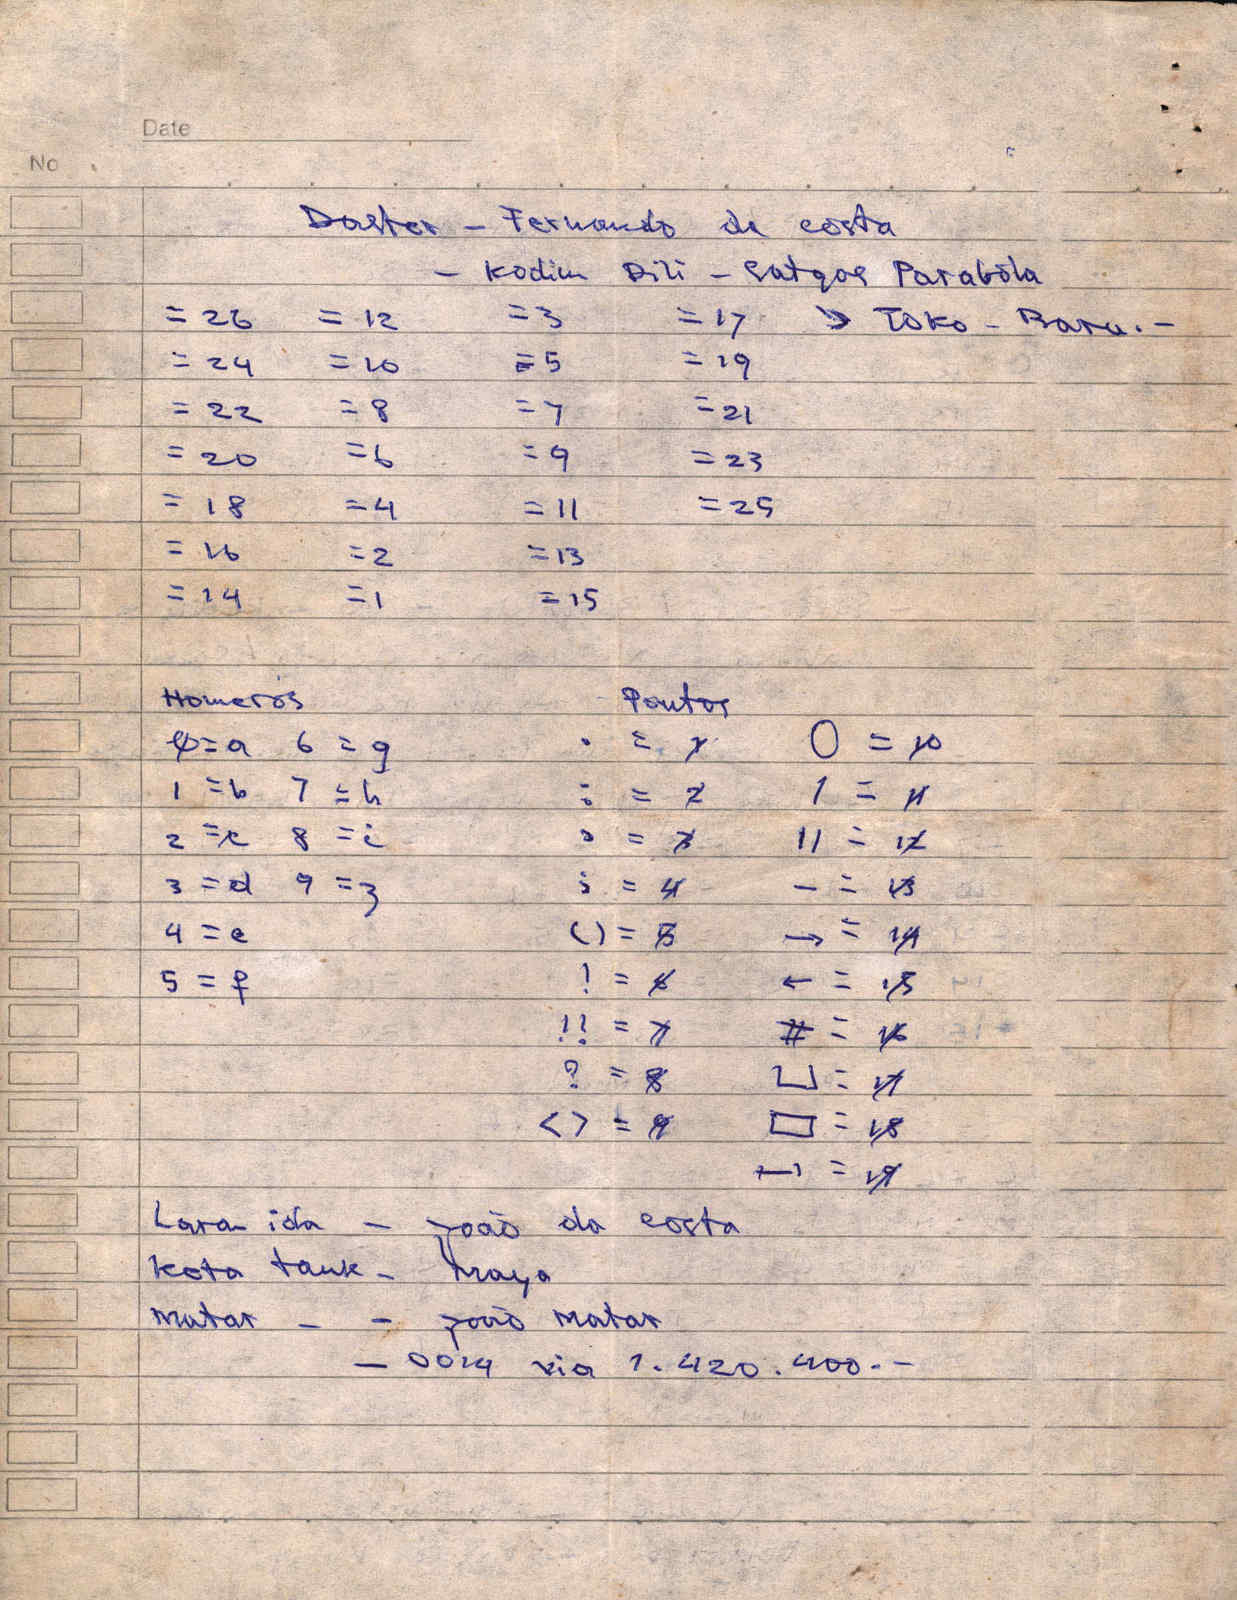 Date
No
Daster - Fernando da costa
- Kodim Dili - Satgas Parabóla
= 26 = 12 = 3 = 17 → Toko - Baru. -
= 24 = 10 = 5 = 19
= 22 = 8 = 7 = 21
= 20 = 6 = 9 = 23
= 18 = 4 = 11 = 25
= 16 = 2 = 13
= 14 = 1 = 15
Homeros Pontos
φ = a 6 = g . = 1 0 = 10
1 = b 7 = h : = 2 / = 11
2 = c 8 = i , = 3 // = 12
3 = d 9 = z ; = 4 - = 13
4 = e () = 5 → = 14
5 = f ! = 6 ← = 15
!! = 7 # = 16
? = 8 ⊔ = 17
<> = 9 ▭ = 18
= 19
Laran ida - joão da costa
Keta tauk - Maya
Matar - - joão Matar
- 0014 via 1.420.400. -